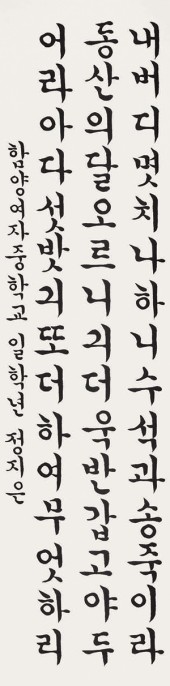 내버디몇치나하니수석과송죽이라
동산의달오르니긔더욱반갑고야두
어라아다섯밧긔또더하여무엇하리
함양여자중학교 일학년 정지은